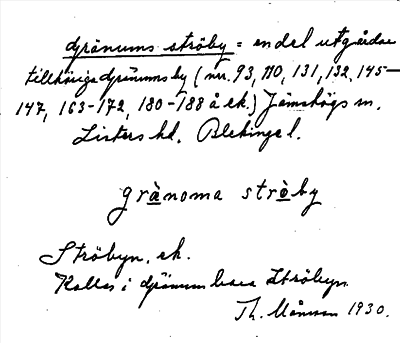 Gränums ströby = en del utgårdar
tillhöriga Gränums by (nr. 93, 110, 131, 132, 145–
147, 163–172, 180–188 å ek.) Jämshögs sn.
Listers hd. Blekinge l.
grànoma stròby
Ströbyn, ek.
Kallas i Gränum bara Ströbyn
Th. Månsson 1930.